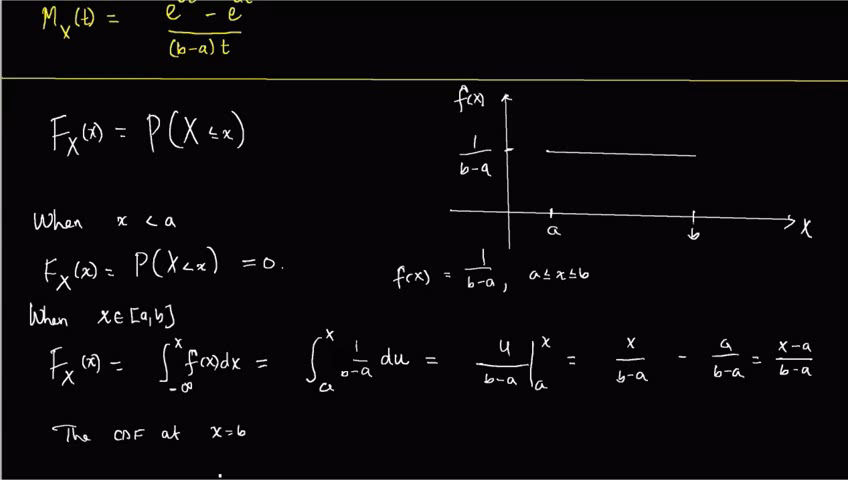 M_X(t) = (e - e) / (b-a)t
F_X(x) = P(X ≤ x)
f(x)
1/(b-a)
a
b
x
When x < a
F_X(x) = P(X < x) = 0.
f(x) = 1/(b-a), a ≤ x ≤ b
When x ∈ [a,b]
F_X(x) = ∫_{-∞}^{x} f(x)dx = ∫_{a}^{x} 1/(b-a) du = u/(b-a) |_{a}^{x} = x/(b-a) - a/(b-a) = (x-a)/(b-a)
The CDF at x=b